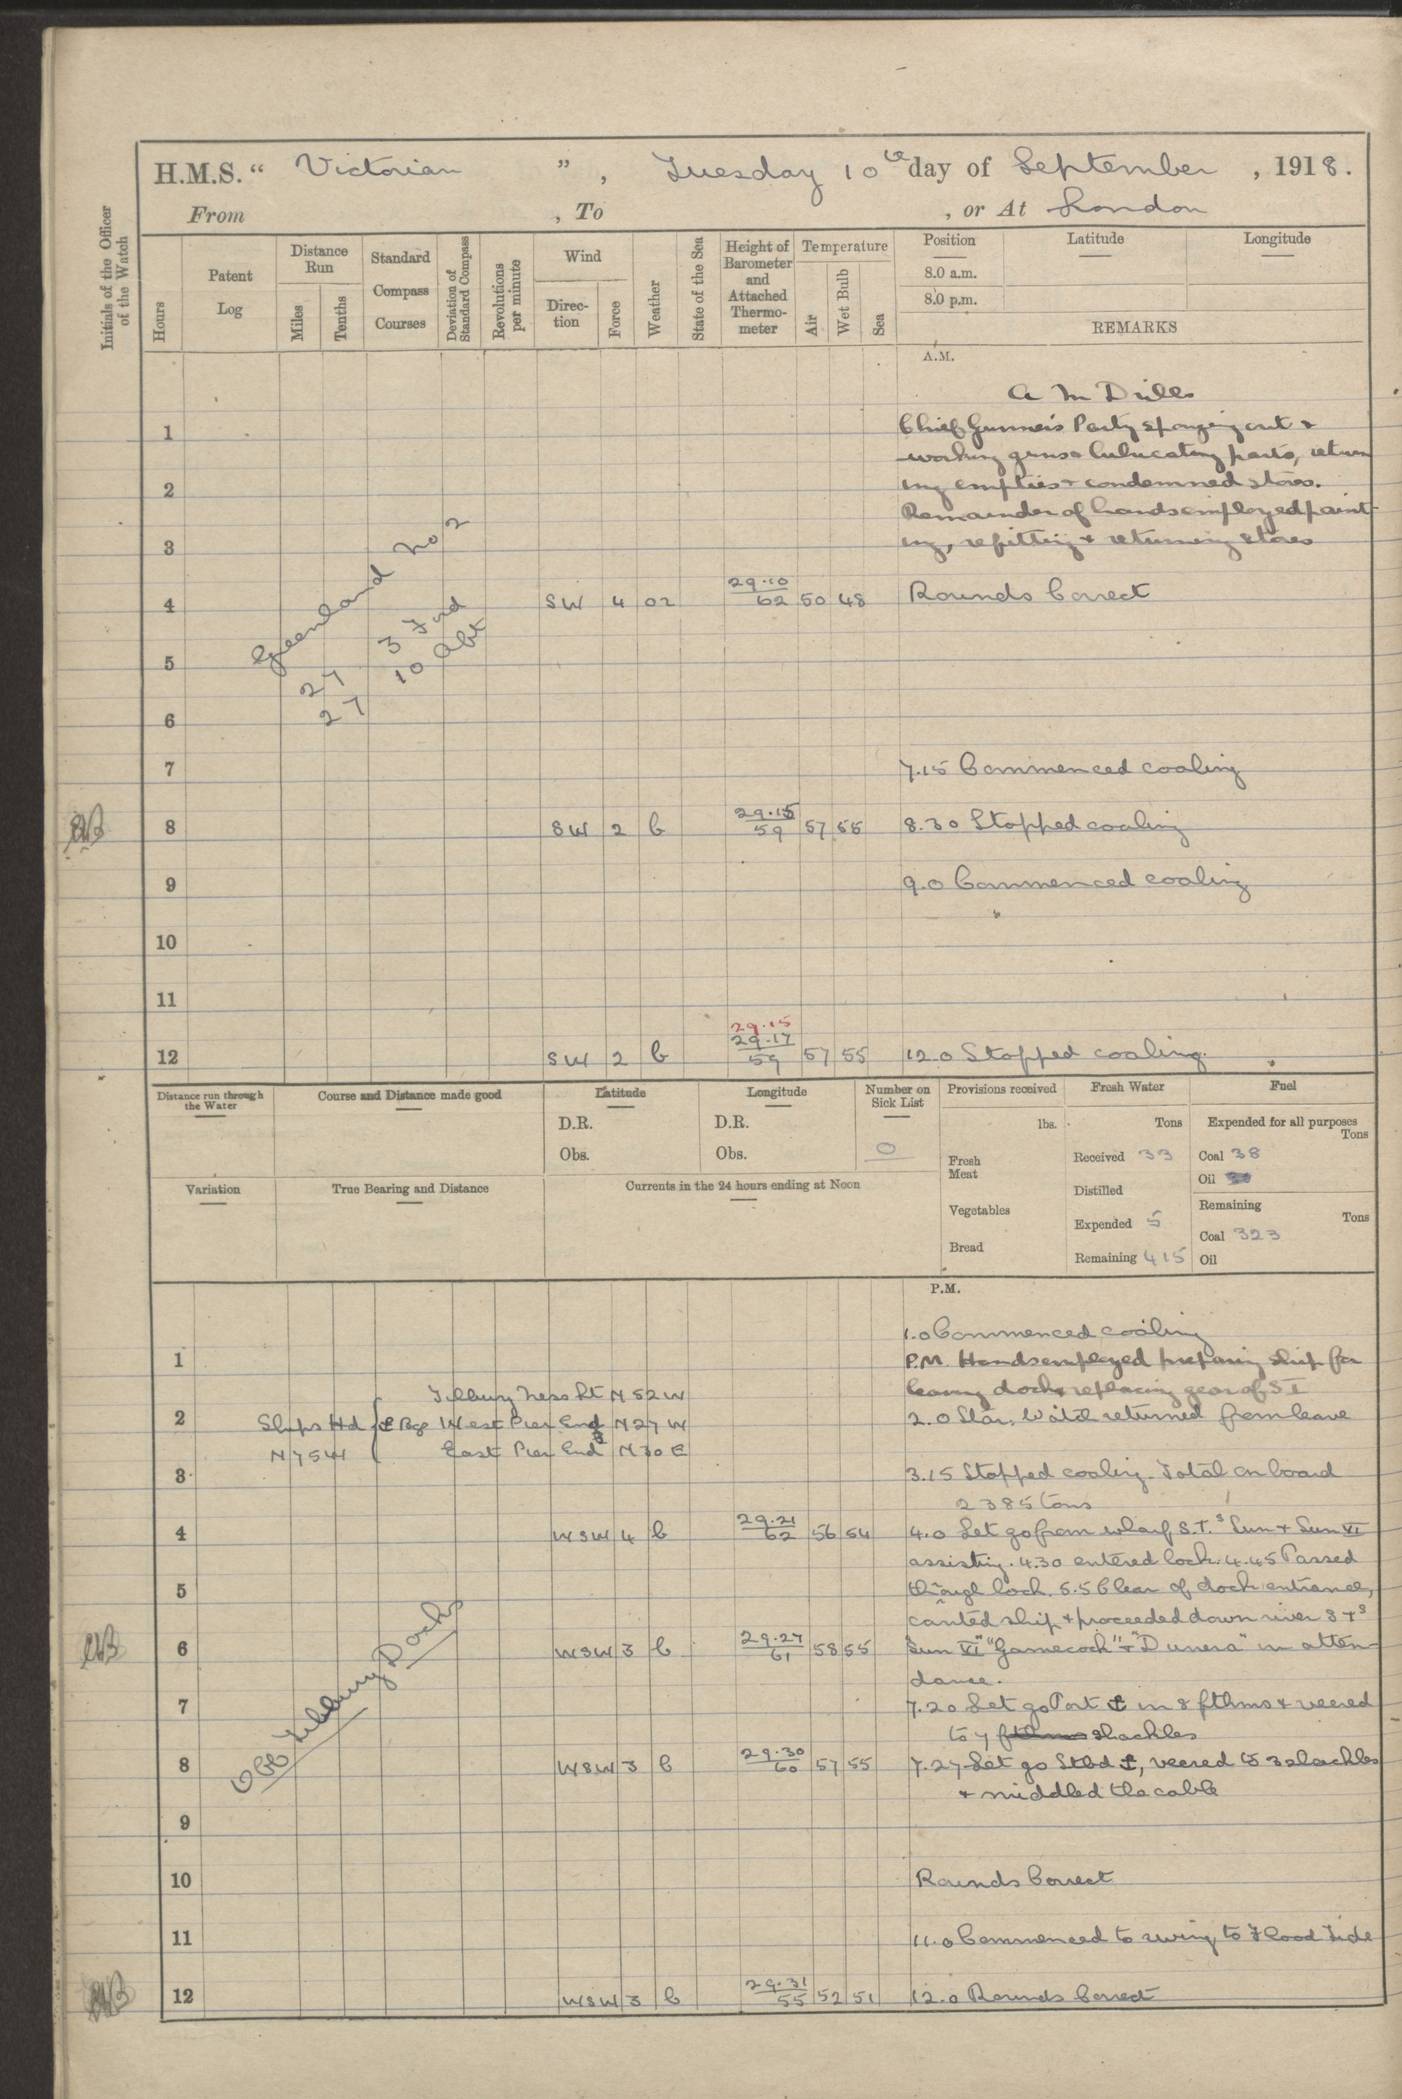 H.M.S. “ Victorian ” , Tuesday 10th day of September , 1918.
From , To , or At London
Initials of the Officer of the Watch
Hours
Patent Log
Distance Run
Miles
Tenths
Standard Compass Courses
Deviation of Standard Compass
Revolutions per minute
Wind
Direc-tion
Force
Weather
State of the Sea
Height of Barometer and Attached Thermo-meter
Temperature
Air
Wet Bulb
Sea
Position
Latitude
Longitude
8.0 a.m.
8.0 p.m.
REMARKS
A.M.
A M Drills
1 Chief Gunner's Party sponging out &
working guns & lubricating parts, return
2 ing empties & condemned stores.
Remainder of hands employed paint-
3 ing, refitting & returning stores
Greenland No 2
4 SW 4 02 29.10 62 50 48 Rounds Correct
27 3 Fwd
27 10 Abt
5
6
7 7.15 Commenced coaling
8 SW 2 b 29.15 59 57 55 8.30 Stopped coaling
9 9.0 Commenced coaling
10
11
29.15
12 SW 2 b 29.17 59 57 55 12.0 Stopped coaling.
Distance run through the Water
Course and Distance made good
Latitude
D.R.
Obs.
Longitude
D.R.
Obs.
Number on Sick List
0
Provisions received
lbs.
Fresh Meat
Vegetables
Bread
Fresh Water
Tons
Received 33
Distilled
Expended 5
Remaining 415
Fuel
Expended for all purposes
Tons
Coal 38
Oil
Remaining
Tons
Coal 323
Oil
Variation
True Bearing and Distance
Currents in the 24 hours ending at Noon
P.M.
1.0 Commenced coaling
1 P.M. Hands employed preparing ship for
Tilbury Ness Lt N 52 W leaving dock & replacing gear of S I
2 Ships Hd ⚓ Bgs West Pier End N 27 W 2.0 Star. Watch returned from leave
N 75 W East Pier End N 30 E
3 3.15 Stopped coaling. Total on board
2385 tons
4 WSW 4 b 29.21 62 56 54 4.0 Let go from wharf S.T.s Sun & Sun VI
assisting. 4.30 entered lock. 4.45 Passed
5 through lock. 5.5 Clear of dock entrance,
canted ship & proceeded down river S Ts
6 WSW 3 b 29.27 61 58 55 "Sun VI" "Gamecock" & "Dunera" in atten-
dance.
7 7.20 Let go Port ⚓ in 8 fthms & veered
to 7 fthms shackles
Off Tilbury Docks
8 WSW 3 b 29.30 60 57 55 7.27 Let go Stbd ⚓, veered to 3 shackles
& middled the cable
9
10 Rounds Correct
11 11.0 Commenced to swing to Flood Tide
12 WSW 3 b 29.31 55 52 51 12.0 Rounds Correct